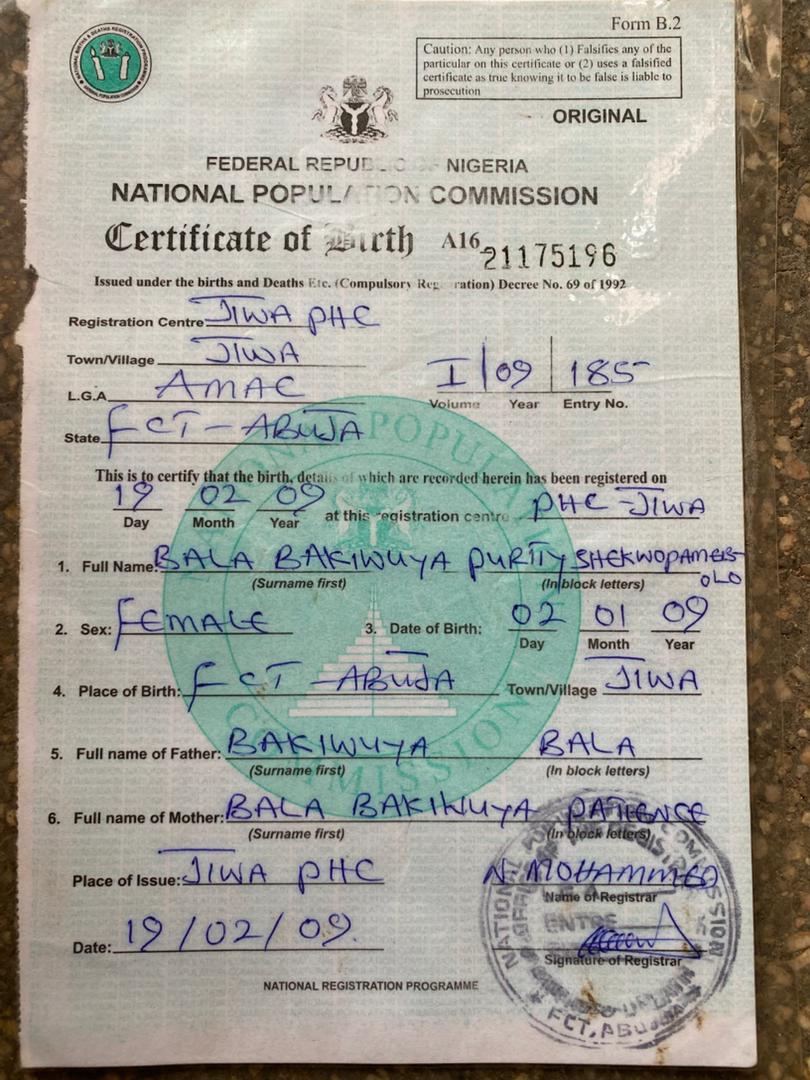 Form B.2
Caution: Any person who (1) Falsifies any of the
particular on this certificate or (2) uses a falsified
certificate as true knowing it to be false is liable to
prosecution
ORIGINAL
FEDERAL NIGERIA
NATIONAL COMMISSION
Certificate of Birth A16 21175196
Issued under the births and Deaths Etc. (Compulsory Decree No. 69 of 1992
Registration Centre JIWA PHC
Town/Village JIWA
L.G.A. AMAC
I | 09 | 185
Volume Year Entry No.
State FCT - ABUJA
This is to certify that the birth, details of which are recorded herein has been registered on
19 02 09 at this registration centre PHC - JIWA
Day Month Year
1. Full Name: BALA BAKIWUYA PURTIY
(Surname first) (In block letters)
2. Sex: FEMALE 3. Date of Birth: 02 01 09
Day Month Year
4. Place of Birth: FCT - ABUJA Town/Village JIWA
5. Full name of Father: BAKIWUYA BALA
(Surname first) (In block letters)
6. Full name of Mother: BALA BAKIWUYA PATIENCE
(Surname first) (In block letters)
Place of Issue: JIWA PHC N. MOHAMMED
Name of Registrar
Date: 19/02/09.
Signature of Registrar
NATIONAL REGISTRATION PROGRAMME
FCT, ABUJA